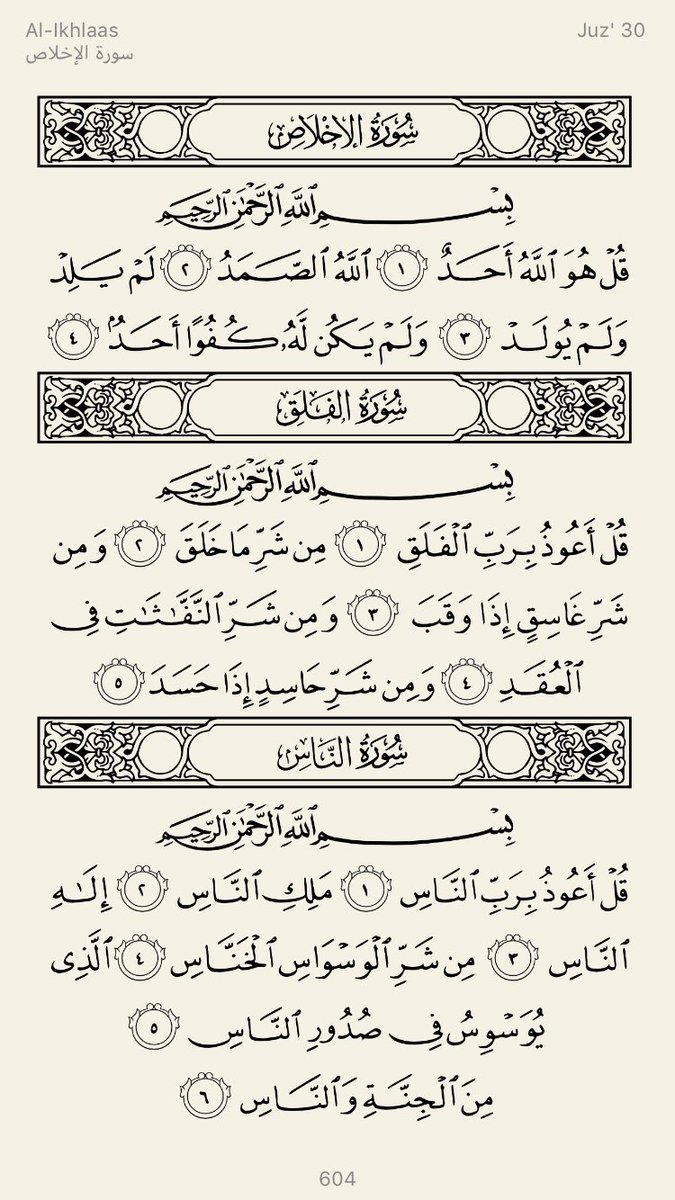 Al-Ikhlaas
سورة الإخلاص
Juz' 30
سُورَةُ الإِخْلَاصِ
بِسْمِ ٱللَّهِ ٱلرَّحْمَٰنِ ٱلرَّحِيمِ
قُلْ هُوَ ٱللَّهُ أَحَدٌ ١ ٱللَّهُ ٱلصَّمَدُ ٢ لَمْ يَلِدْ
وَلَمْ يُولَدْ ٣ وَلَمْ يَكُن لَّهُۥ كُفُوًا أَحَدٌۢ ٤
سُورَةُ الفَلَقِ
بِسْمِ ٱللَّهِ ٱلرَّحْمَٰنِ ٱلرَّحِيمِ
قُلْ أَعُوذُ بِرَبِّ ٱلْفَلَقِ ١ مِن شَرِّ مَا خَلَقَ ٢ وَمِن
شَرِّ غَاسِقٍ إِذَا وَقَبَ ٣ وَمِن شَرِّ ٱلنَّفَّٰثَٰتِ فِى
ٱلْعُقَدِ ٤ وَمِن شَرِّ حَاسِدٍ إِذَا حَسَدَ ٥
سُورَةُ النَّاسِ
بِسْمِ ٱللَّهِ ٱلرَّحْمَٰنِ ٱلرَّحِيمِ
قُلْ أَعُوذُ بِرَبِّ ٱلنَّاسِ ١ مَلِكِ ٱلنَّاسِ ٢ إِلَٰهِ
ٱلنَّاسِ ٣ مِن شَرِّ ٱلْوَسْوَاسِ ٱلْخَنَّاسِ ٤ ٱلَّذِى
يُوَسْوِسُ فِى صُدُورِ ٱلنَّاسِ ٥
مِنَ ٱلْجِنَّةِ وَٱلنَّاسِ ٦
604